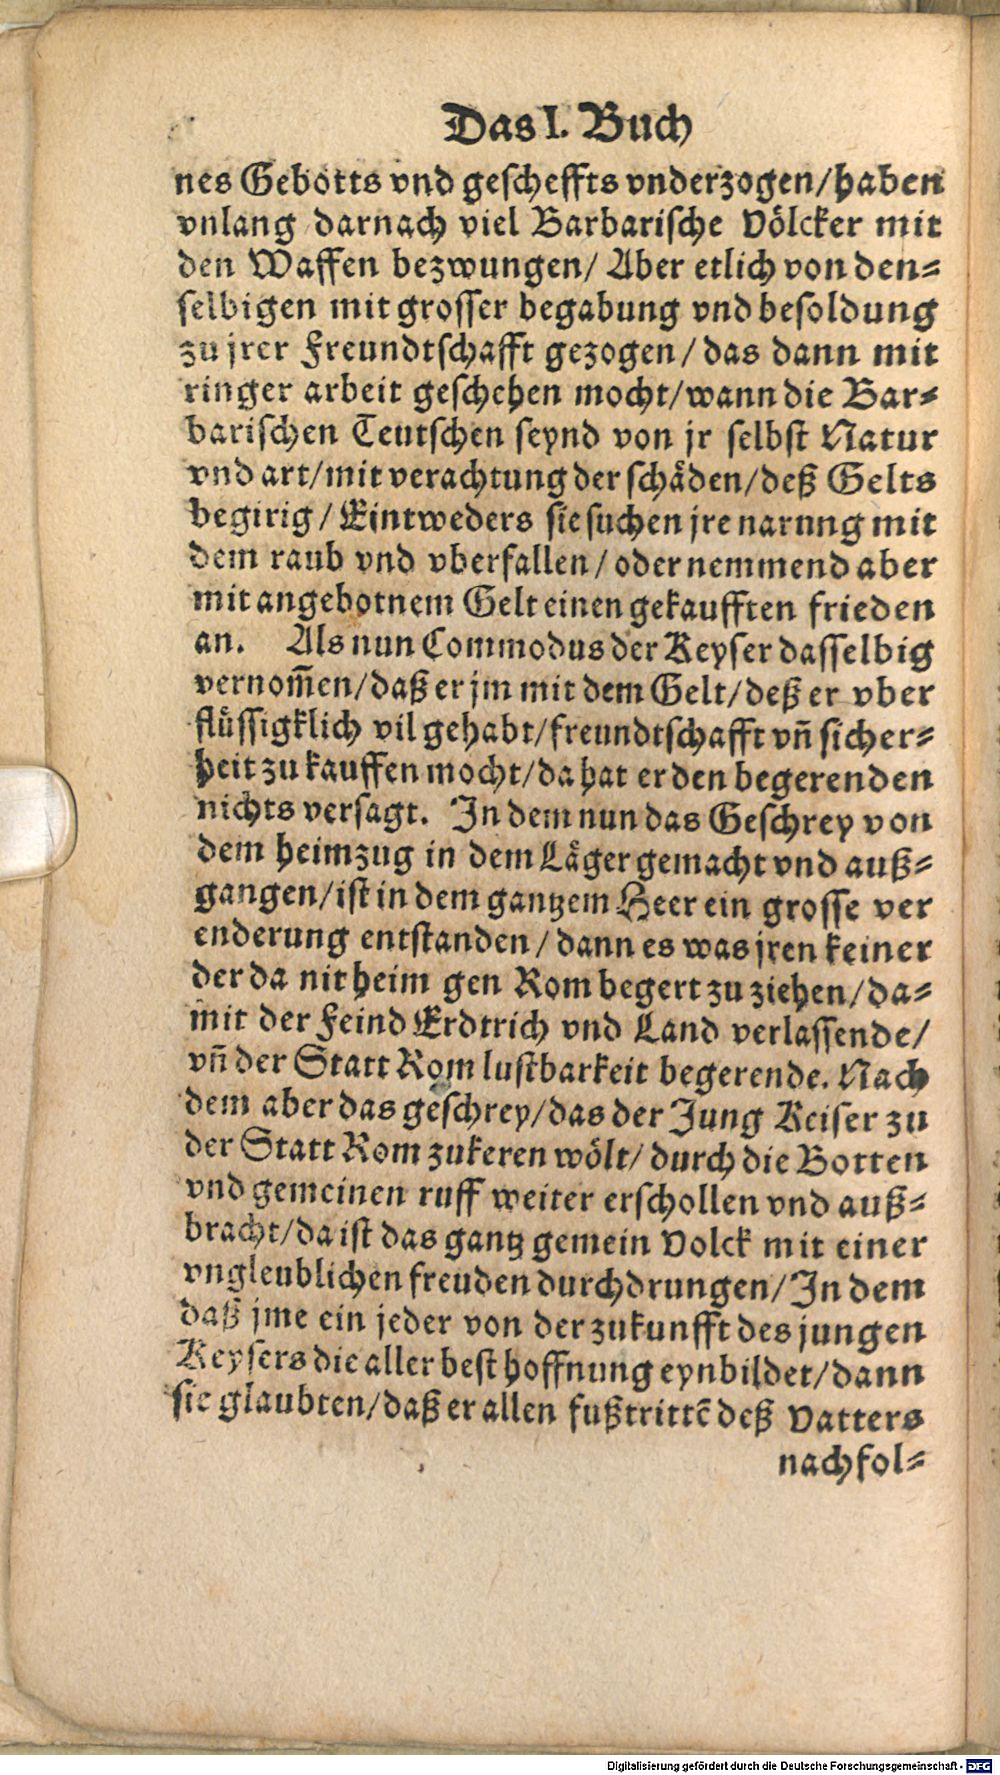 Das I. Buch
nes Gebotts vnd gescheffts vnderzogen/haben
vnlang darnach viel Barbarische Völcker mit
den Waffen bezwungen/ Aber etlich von den⸗
selbigen mit grosser begabung vnd besoldung
zu jrer Freundtschafft gezogen/das dann mit
ringer arbeit geschehen mocht/wann die Bar⸗
barischen Teutschen seynd von jr selbst Natur
vnd art/mit verachtung der schäden/deß Gelts
begirig/Eintweders sie suchen jre narung mit
dem raub vnd vberfallen/oder nemmend aber
mit angebotnem Gelt einen gekaufften frieden
an. Als nun Commodus der Keyser dasselbig
vernom̃en/daß er jm mit dem Gelt/deß er vber
flüssigklich vil gehabt/freundtschafft vñ sicher⸗
heit zu kauffen mocht/da hat er den begerenden
nichts versagt. In dem nun das Geschrey von
dem heimzug in dem Läger gemacht vnd auß⸗
gangen/ist in dem gantzem Heer ein grosse ver
enderung entstanden/dann es was jren keiner
der da nit heim gen Rom begert zu ziehen/da⸗
mit der Feind Erdtrich vnd Land verlassende/
vñ der Statt Rom lustbarkeit begerende. Nach
dem aber das geschrey/das der Jung Keiser zu
der Statt Rom zukeren wölt/durch die Botten
vnd gemeinen ruff weiter erschollen vnd auß⸗
bracht/da ist das gantz gemein Volck mit einer
vngleublichen freuden durchdrungen/In dem
daß jme ein jeder von der zukunfft des jungen
Keysers die aller best hoffnung eynbildet/dann
sie glaubten/daß er allen fußtrittẽ deß Vatters
nachfol⸗
Digitalisierung gefördert durch die Deutsche Forschungsgemeinschaft - DFG